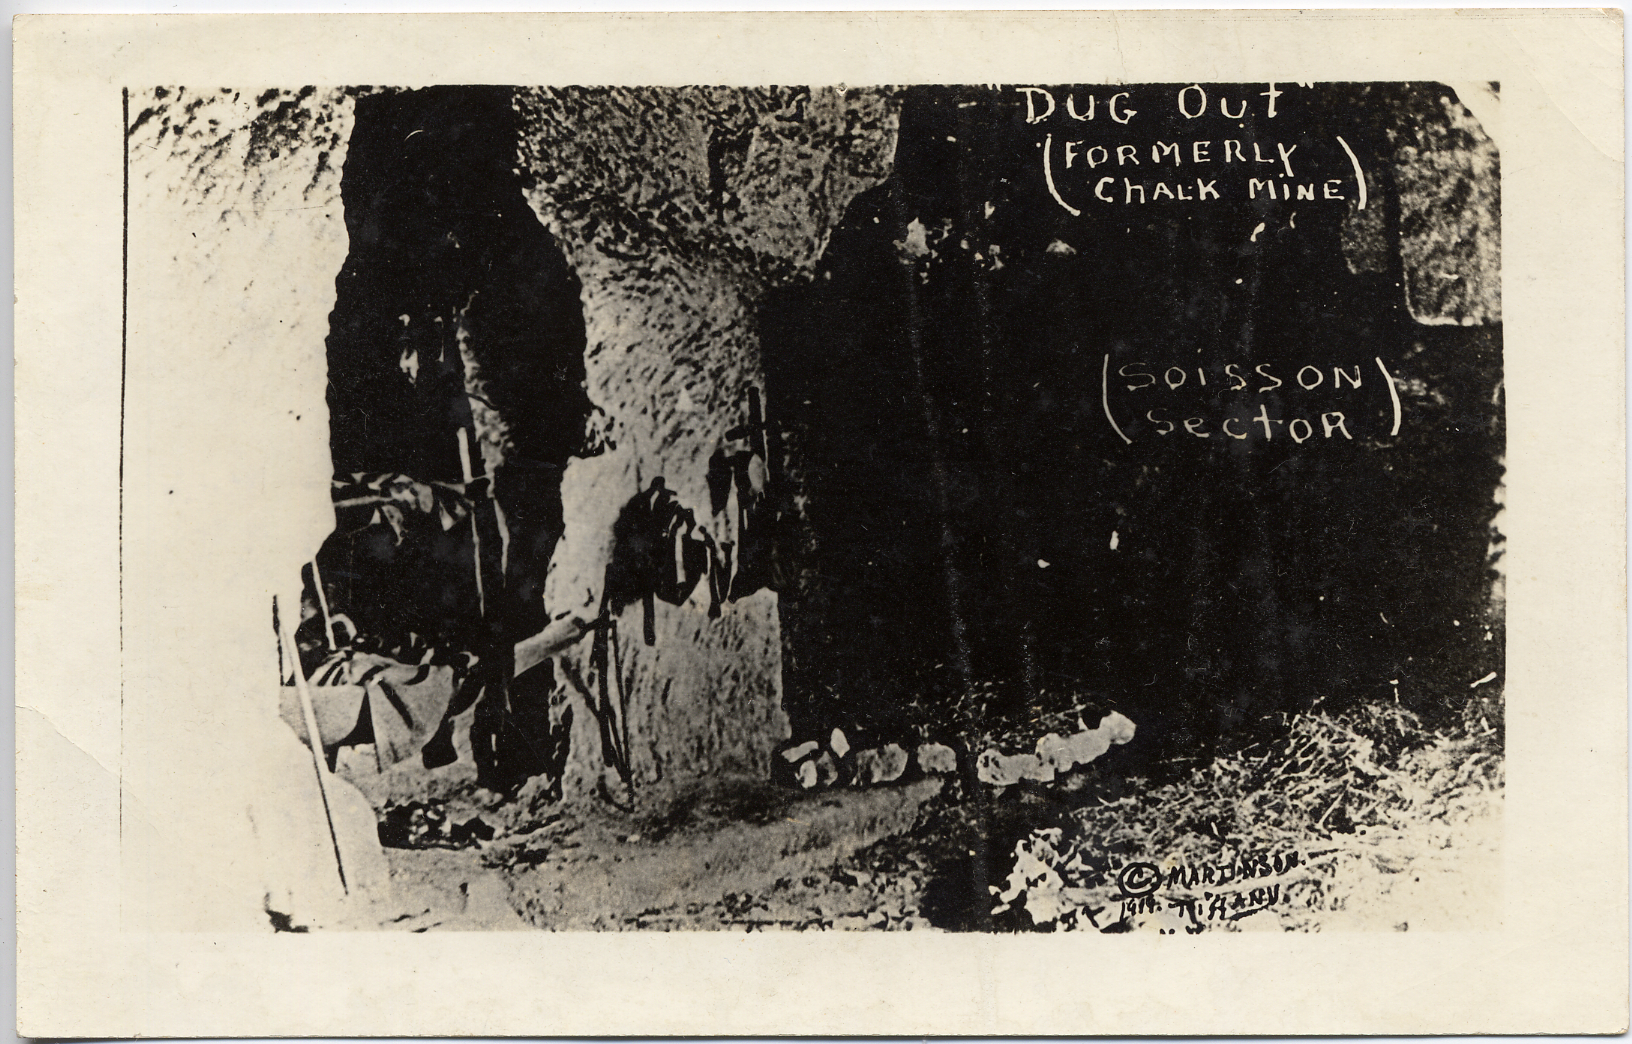 "Dug Out"
(Formerly
Chalk Mine)
(Soisson
Sector)
© Martinson.
1919. Tiffany.